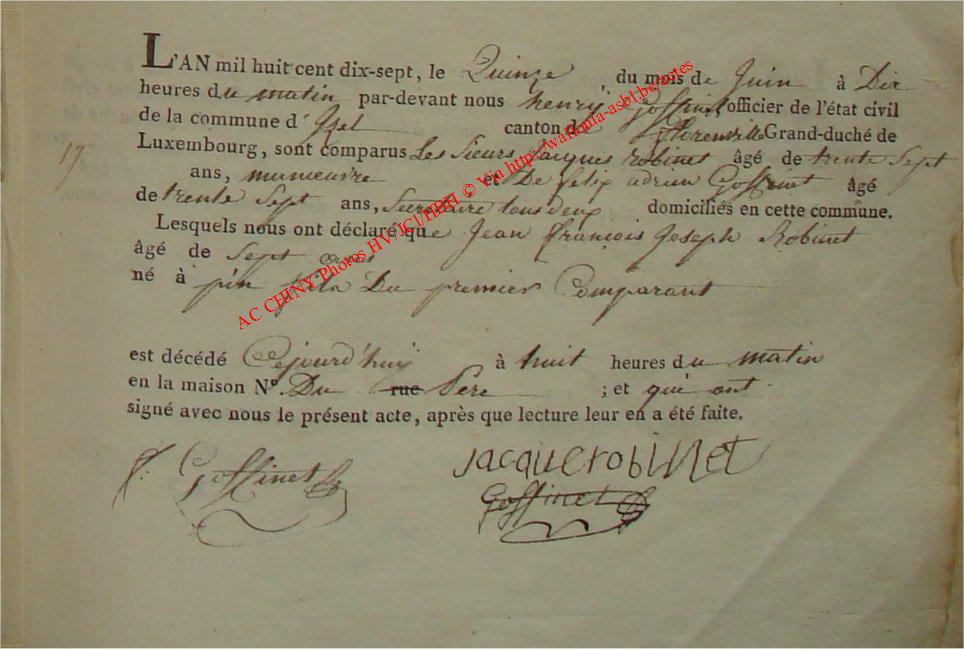 L'AN mil huit cent dix-sept, le Quinze du mois de Juin à Dix
heures du matin par-devant nous henry Goffinet, officier de l'état civil
de la commune d'Izel canton de florenville Grand-duché de
17 Luxembourg, sont comparus Les Sieurs Jacques Robinet âgé de trente Sept
ans, manœuvre et De felix adrien Goffinet âgé
de trente Sept ans, Secretaire tous deux domiciliés en cette commune.
Lesquels nous ont déclaré que Jean françois Joseph Robinet
âgé de Sept ans
né à pin fils Du premier Comparant
est décédé Cejourd'huy à huit heures du matin
en la maison N° Du rue Pere ; et qui ont
signé avec nous le présent acte, après que lecture leur en a été faite.
f. Goffinet jacque robinet
Goffinet
AC CHINY Photos HV/JCl/HPH © Via http://wallonia-asbl.be/actes